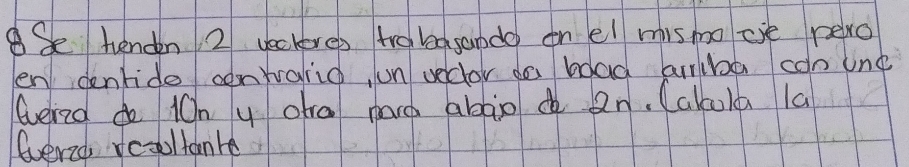 8 Se tienden 2 vectores trabajando en el mismo eje pero
en sentido contrario, un vector va hacia arriba con una
fuerza de 10n y otra para abajo de 2n. Calcula la
fuerza resultante